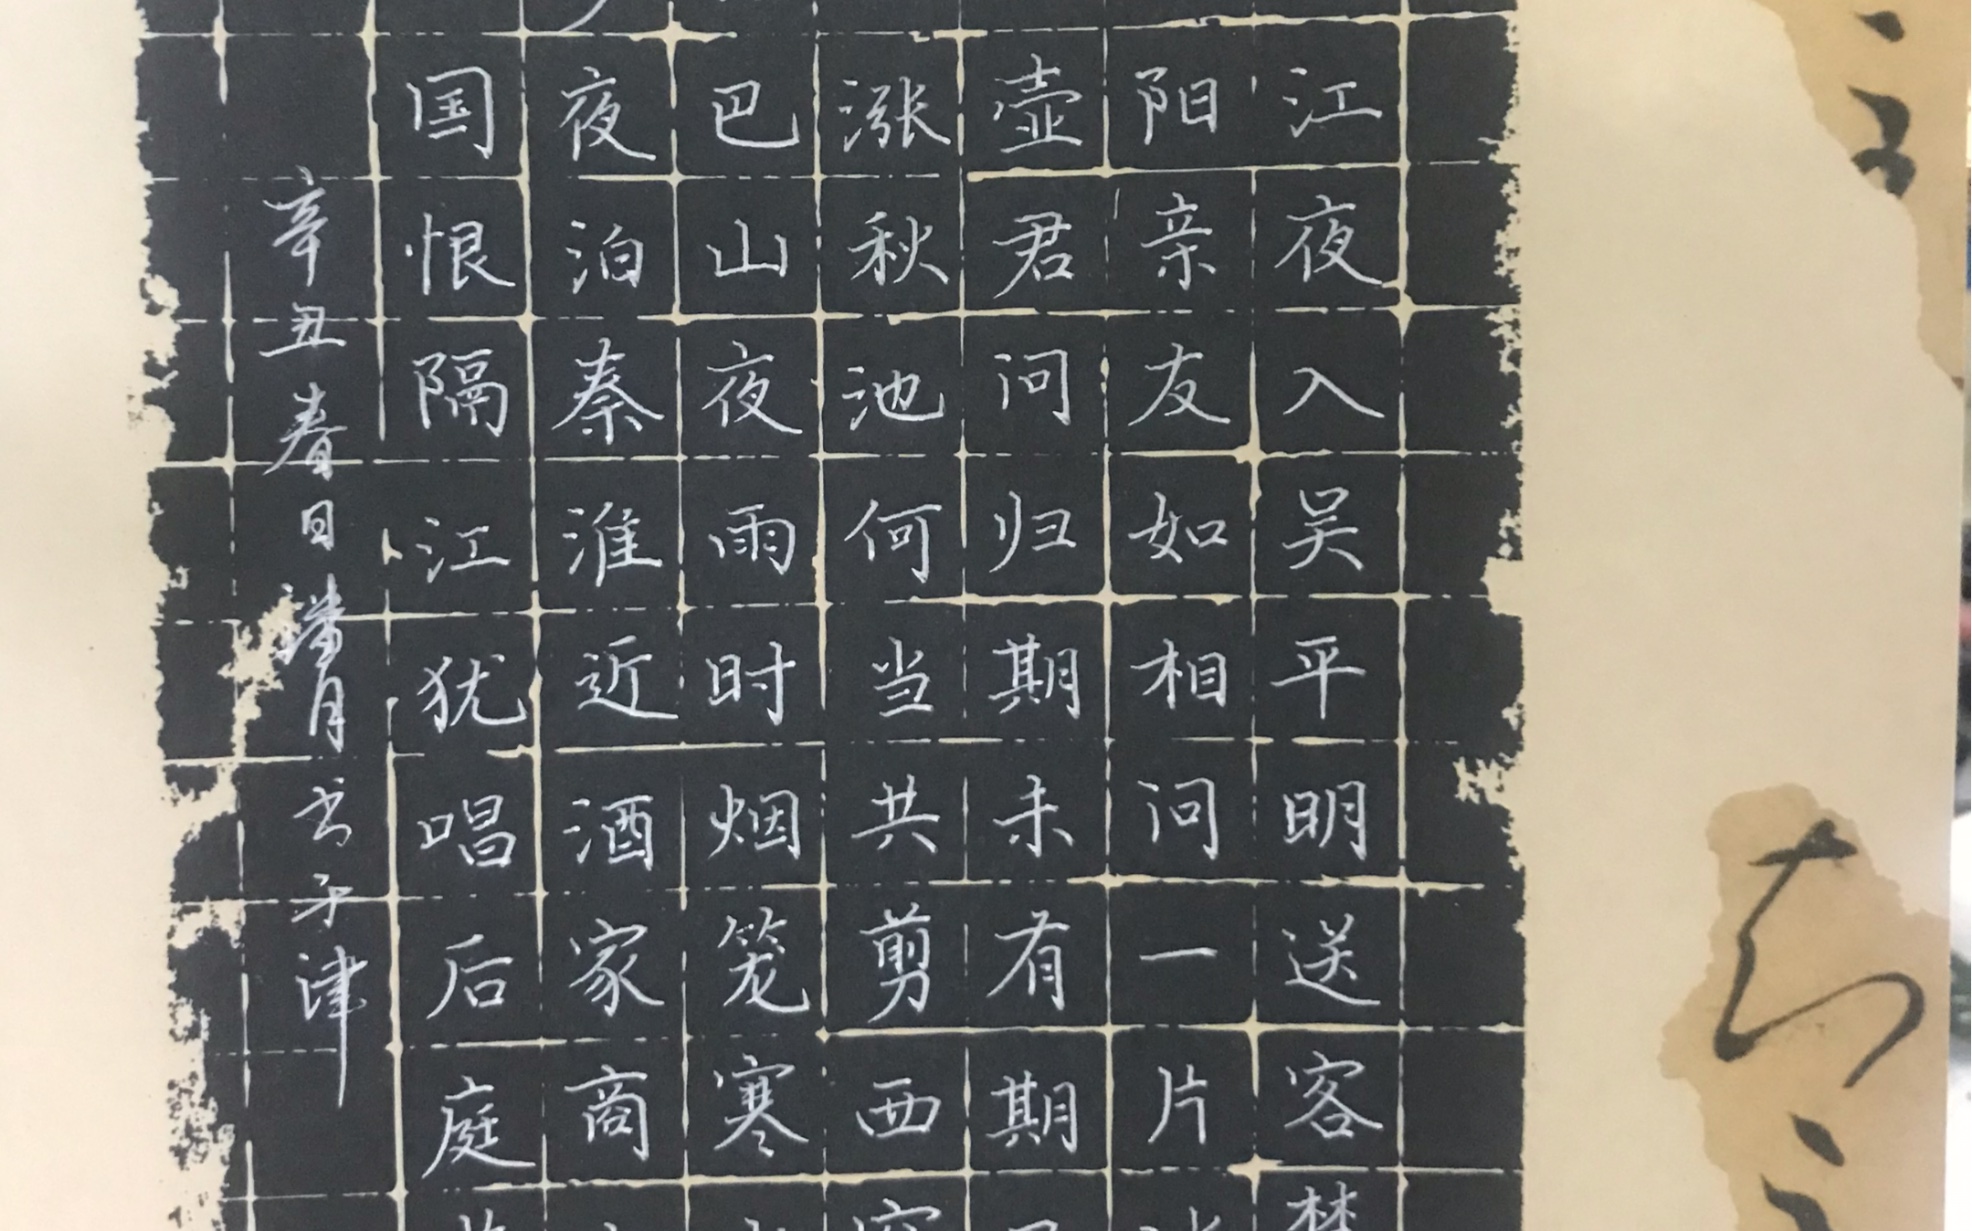 江夜入吴平明送客
阳亲友如相问一片
壶君问归期未有期
涨秋池何当共剪西
巴山夜雨时烟笼寒
夜泊秦淮近酒家商
国恨隔江犹唱后庭
辛丑春日月书于津